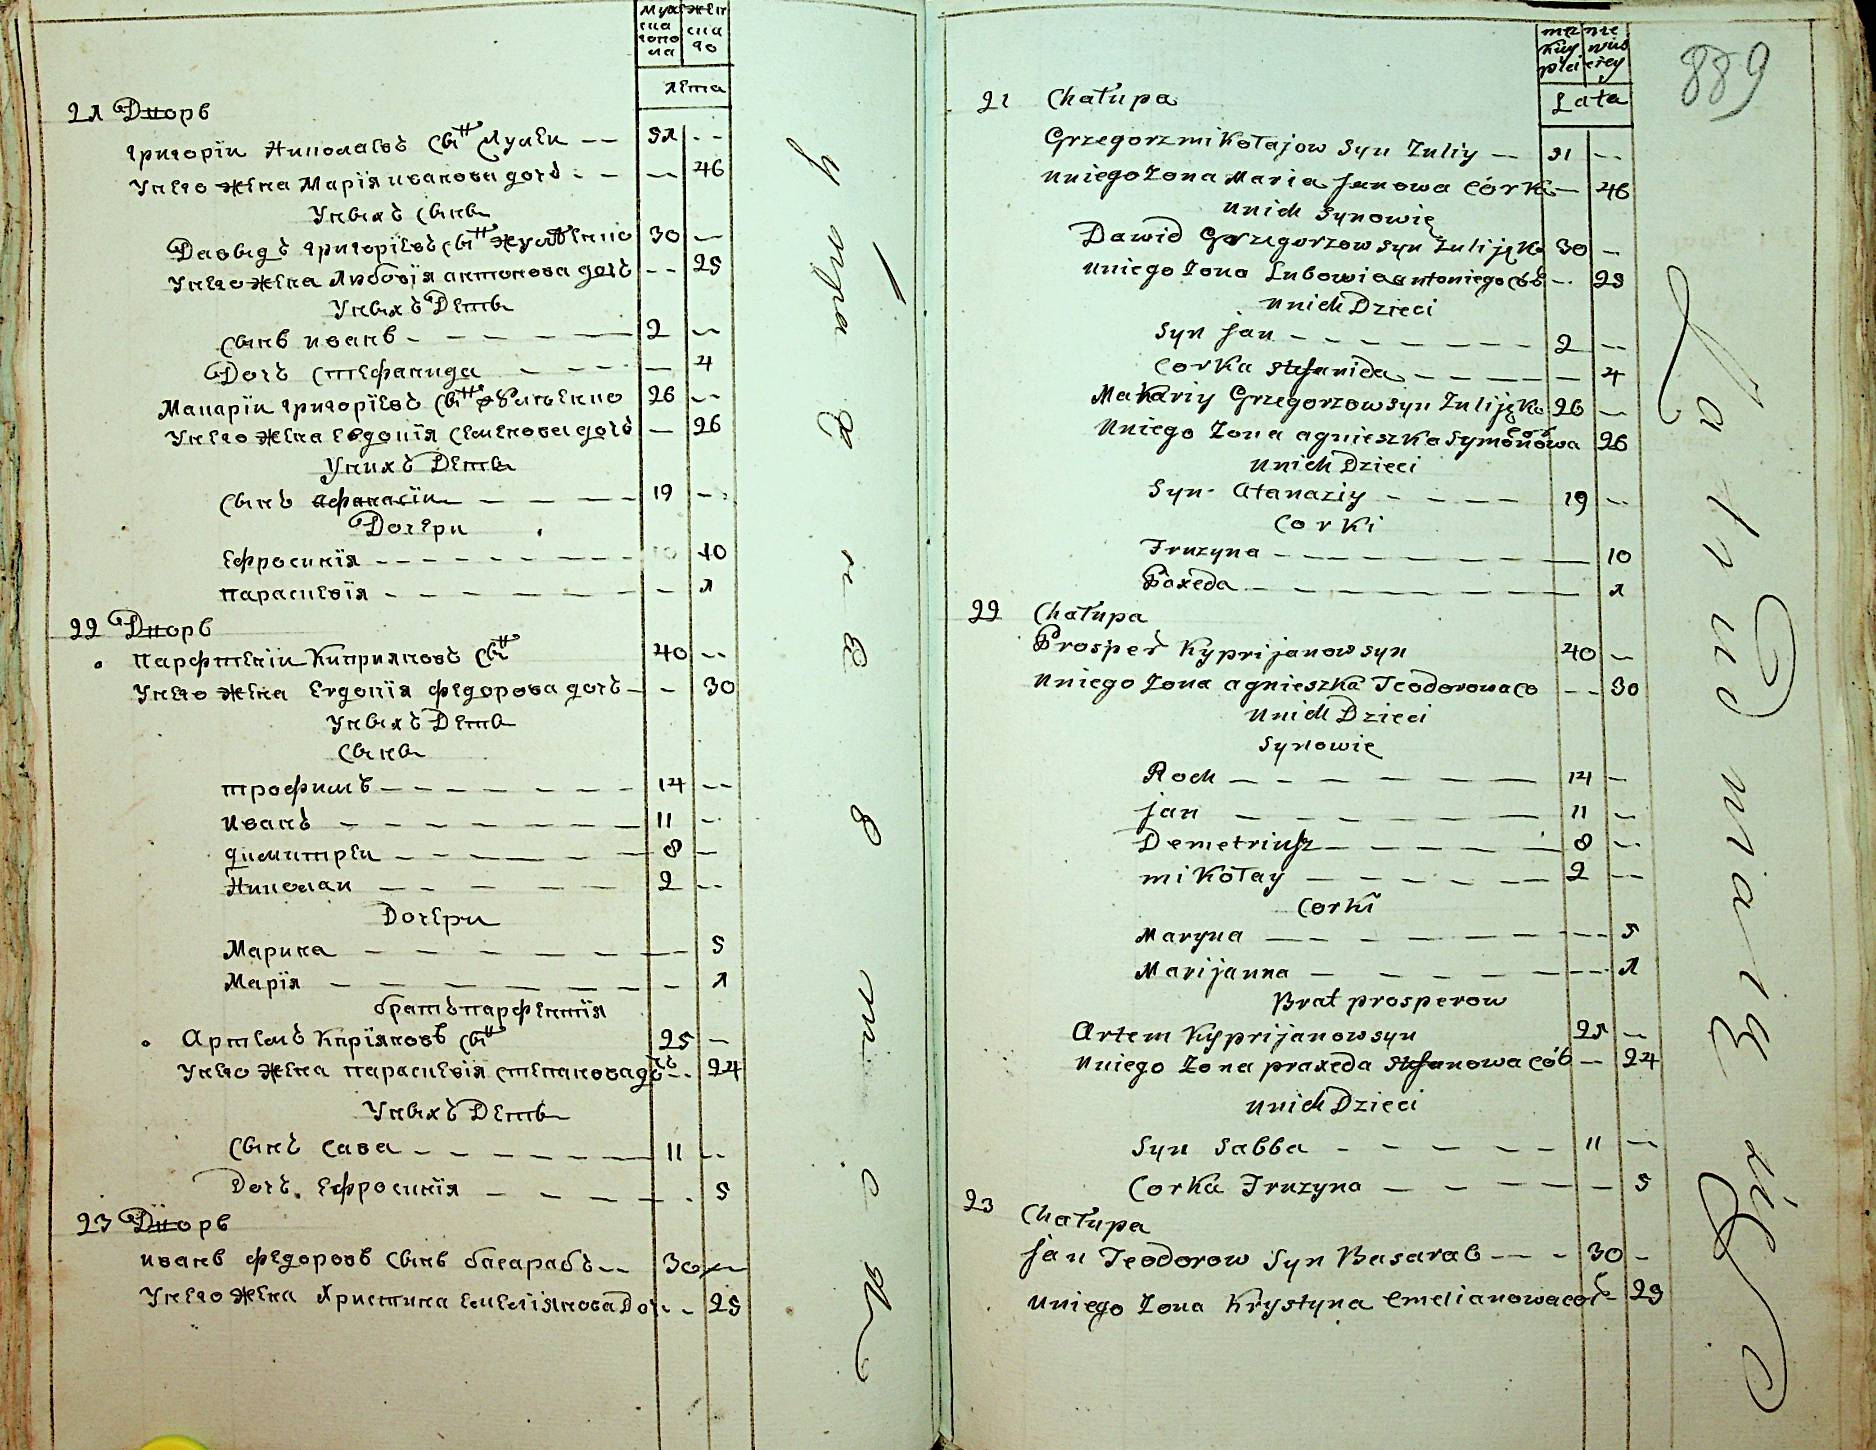 мужеска го пола
женска го
лета
21 Дворъ
григории Николаевъ сынъ Жулеи -- 51 --
У него жена Марїя иванова дочь - -- 46
У ныхъ сыны
Давыдъ григорїевъ сынъ 30 --
У него жена Любовїя антонова дочь -- 25
У ныхъ Дѣты
сынъ иванъ 2 --
Дочь стефанида -- 4
Макарїи григорїевъ сынъ 26 --
У него жена Евдокїя семенова дочь -- 26
У нихъ Дѣты
сынъ афанасїи 19 --
Дочери
Ефросинїя 10
параскевїя - 1
22 Дворъ
парфтении Киприяновъ сынъ 40 --
У него жена Евдокїя федорова дочь - 30
У ныхъ Дѣты
сыны
трофимъ 14 --
иванъ 11 -
димитреи 8 -
Николаи 2 --
Дочери
Марина 5
Марїя 1
братъ парфентїя
Артемъ Кпрїяновъ сынъ 25 -
У него жена параскевїя степанова дочь - 24
У ныхъ Дѣты
сынъ сава 11 --
Дочь Ефросинїя 5
23 Дворъ
иванъ федоровъ сынъ басарабъ -- 30 --
У него жена Христина емелїянова Доч - 25
męz kiey płci
nie wies ciey
Lata
889
21 Chałupa
Grzegorz mikołajow syn Zuliy -- 51 --
uniego Zona Maria Janowa Córk -- 46
unich synowie
Dawid Grzegorzow syn Zulijęko 30 --
uniego Zona Lubowia antoniego cób -- 25
unich Dzieci
Syn Jan 2 --
Corka stefanida 4
Makariy Grzegorzow syn Zulijęko 26 --
uniego Zona agnieszka Symonowa cór 26
unich Dzieci
Syn Atanaziy 19 --
Corki
Fruzyna 10
Paxeda 1
22 Chałupa
Prosper Kyprijanow syn 40 --
uniego Zona agnieszka Teodorowa co -- 30
unich Dzieci
synowie
Roch 14 --
jan 11 --
Demetriusz 8 --
mikołay 2 --
Corki
Maryna 5
Marijanna 1
Brat prosperow
Artem Kyprijanow syn 25 --
uniego Zona praxeda stefanowa cób -- 24
unich Dzieci
Syn Sabba 11 --
Corka Fruzyna 5
23 Chałupa
Jan Teodorow Syn Basarab -- 30 -
uniego Zona Krystyna emelianowa cór 25